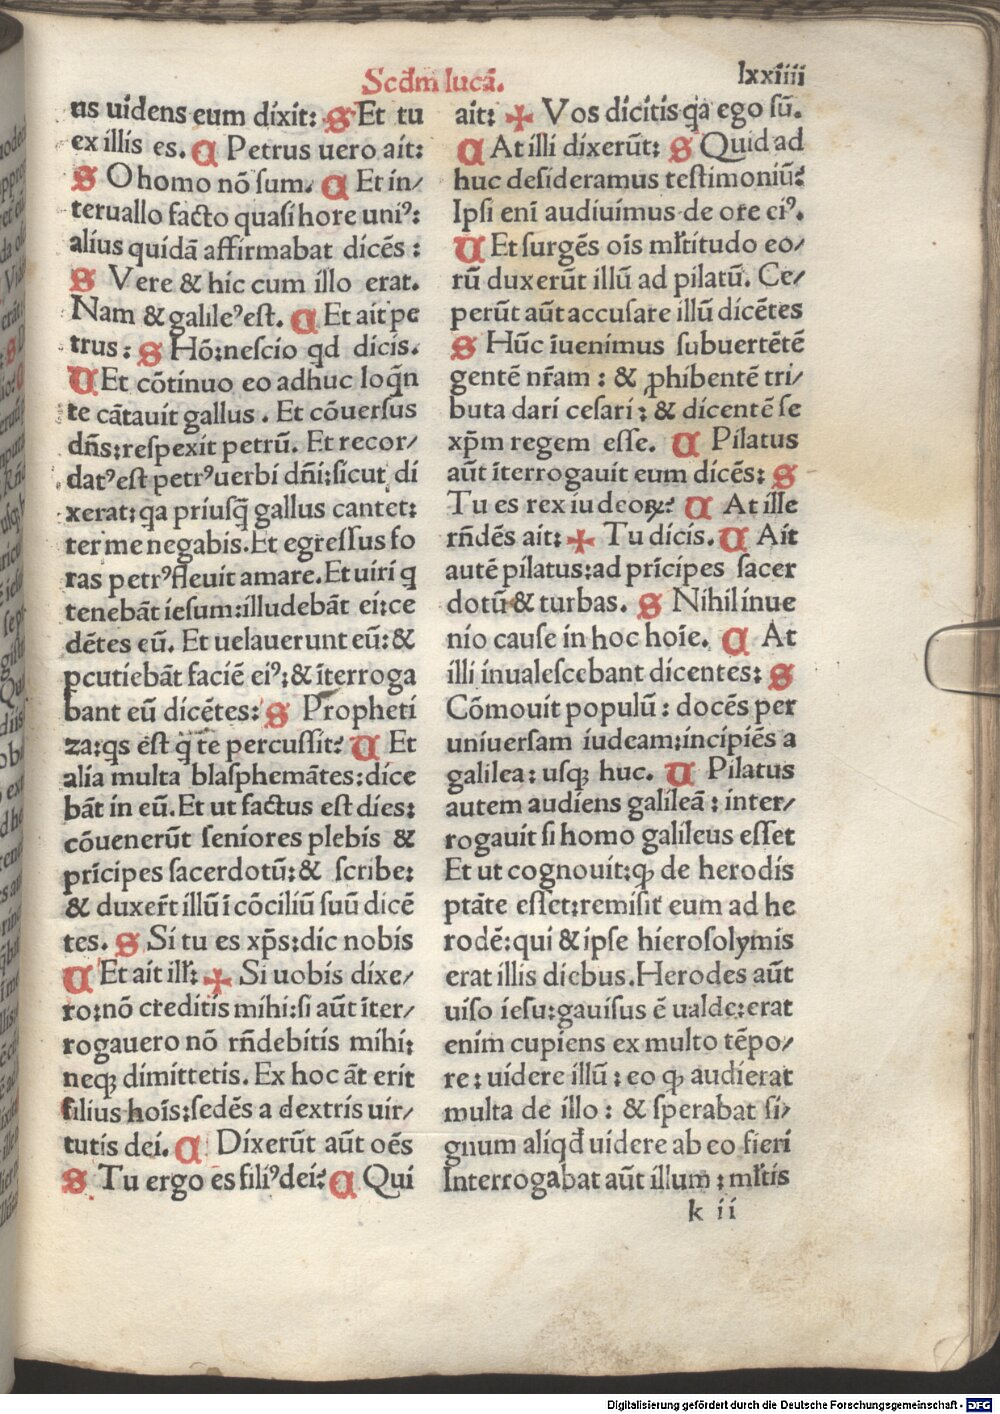 Scdm lucā.
lxxiiii
us uidens eum dixit: S Et tu
ex illis es. C Petrus uero ait:
S O homo nō sum. C Et in/
teruallo facto quasi hore uniꝰ:
alius quidā affirmabat dicēs:
S Vere & hic cum illo erat.
Nam & galileꝰ est. C Et ait pe
trus: S Hō: nescio qd dicis.
C Et cōtinuo eo adhuc loq̄n
te cātauit gallus. Et cōuersus
dñs: respexit petrū. Et recor/
datꝰ est petrꝰ uerbi dñi: sicut di
xerat: qa priusq̄ gallus cantet:
ter me negabis. Et egressus fo
ras petrꝰ fleuit amare. Et uiri q
tenebāt iesum: illudebāt ei: ce
dētes eū. Et uelauerunt eū: &
ꝑcutiebāt faciē eiꝰ: & īterroga
bant eū dicētes: S Propheti
za: qs est q te percussit? C Et
alia multa blasphemātes: dice
bāt in eū. Et ut factus est dies:
cōuenerūt seniores plebis &
prīcipes sacerdotū: & scribe:
& duxerūt illū ī cōciliū suū dicē
tes. S Si tu es xp̄s: dic nobis
C Et ait ill̄: ✠ Si uobis dixe/
ro: nō creditis mihi: si aūt īter/
rogauero nō rñdebitis mihi:
neqꝫ dimittetis. Ex hoc āt erit
filius hoīs: sedēs a dextris uir/
tutis dei. C Dixerūt aūt oēs
S Tu ergo es filiꝰ dei? C Qui
ait: ✠ Vos dicitis qa ego sū.
C At illi dixerūt: S Quid ad
huc desideramus testimoniū?
Ipsi enī audiuimus de ore eiꝰ.
C Et surgēs oīs ml̄titudo eo/
rū duxerūt illū ad pilatū. Ce/
perūt aūt accusare illū dicētes
S Hūc īuenimus subuertētē
gentē nr̄am: & ꝓhibentē tri/
buta dari cesari: & dicentē se
xp̄m regem esse. C Pilatus
aūt īterrogauit eum dicēs: S
Tu es rex iudeoꝝ? C At ille
rñdēs ait: ✠ Tu dicis. C Ait
autē pilatus: ad prīcipes sacer
dotū & turbas. S Nihil inue
nio cause in hoc hoīe. C At
illi inualescebant dicentes: S
Cōmouit populū: docēs per
uniuersam iudeam: incipiēs a
galilea: usqꝫ huc. C Pilatus
autem audiens galileā: inter/
rogauit si homo galileus esset
Et ut cognouit: qꝫ de herodis
ptāte esset: remisit eum ad he
rodē: qui & ipse hierosolymis
erat illis diebus. Herodes aūt
uiso iesu: gauisus ē ualde: erat
enim cupiens ex multo tēpo/
re: uidere illū: eo qꝫ audierat
multa de illo: & sperabat si/
gnum aliqd uidere ab eo fieri
Interrogabat aūt illum: ml̄tis
k ii
Digitalisierung gefördert durch die Deutsche Forschungsgemeinschaft - DFG